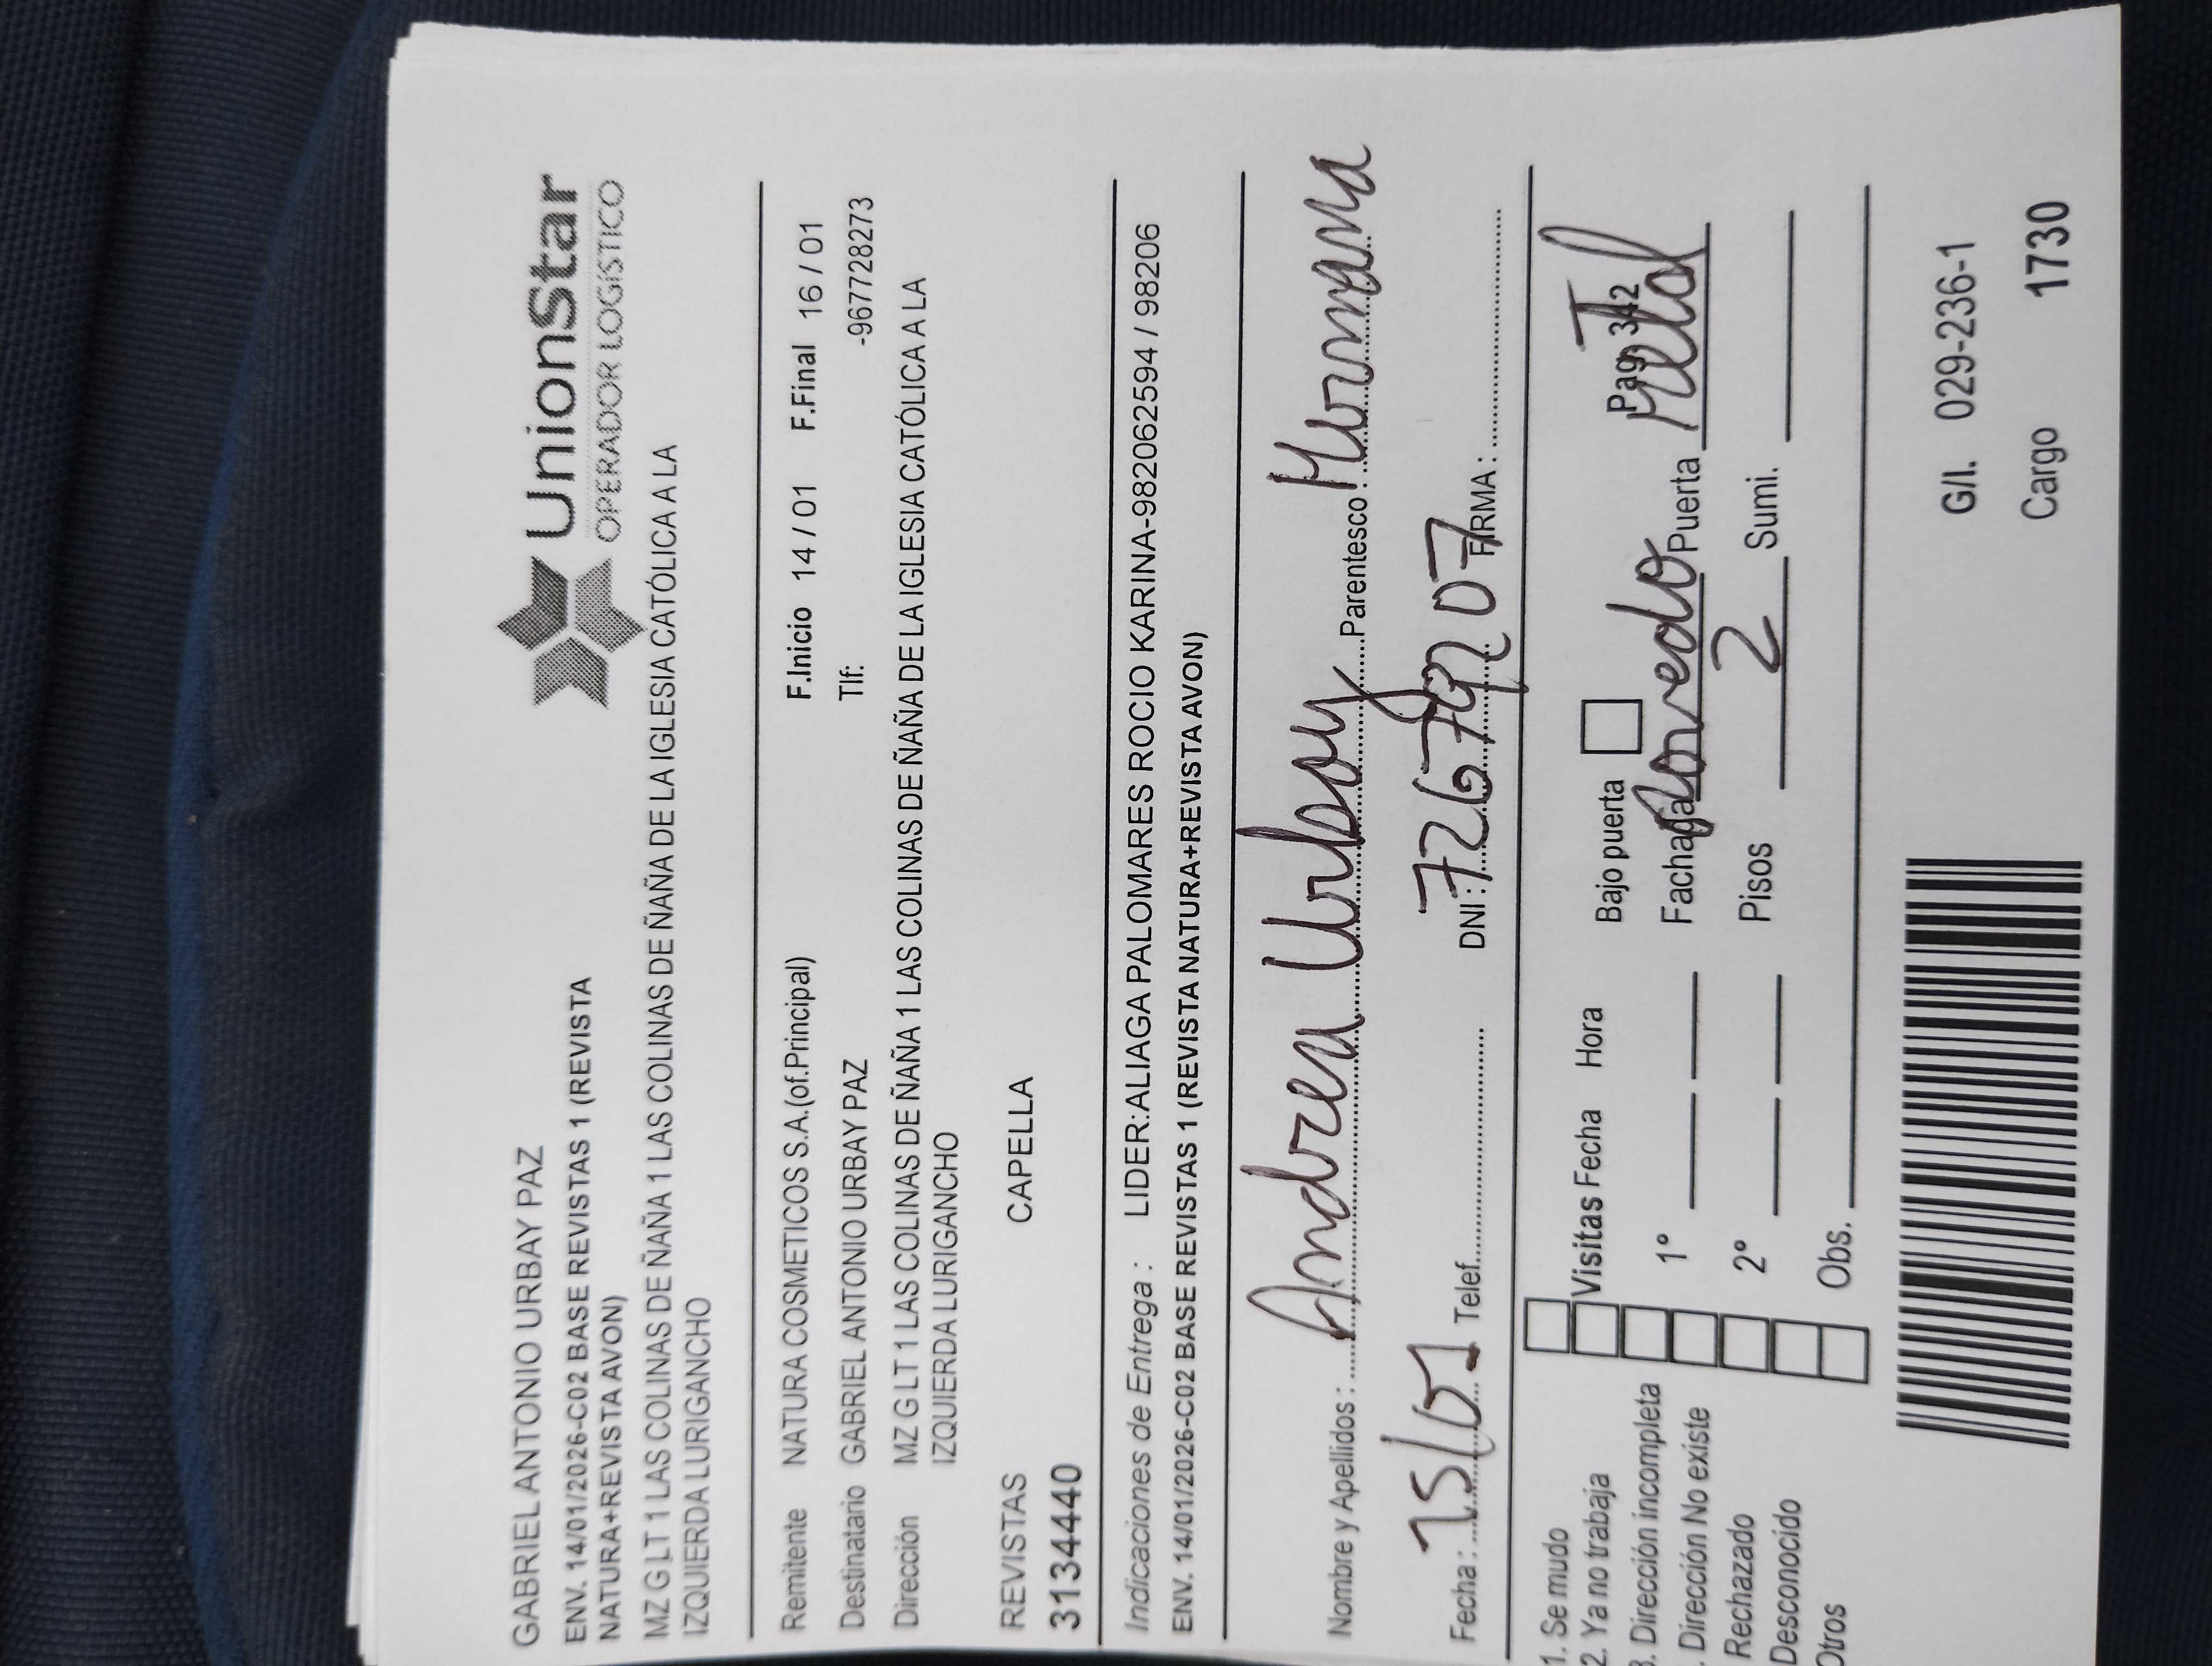 GABRIEL ANTONIO URBAY PAZ
UnionStar
OPERADOR LOGÍSTICO
ENV. 14/01/2026-C02 BASE REVISTAS 1 (REVISTA
NATURA+REVISTA AVON)
MZ G LT 1 LAS COLINAS DE ÑAÑA 1 LAS COLINAS DE ÑAÑA DE LA IGLESIA CATÓLICA A LA
IZQUIERDA LURIGANCHO
Remitente NATURA COSMETICOS S.A.(of.Principal) F.Inicio 14 / 01 F.Final 16 / 01
Destinatario GABRIEL ANTONIO URBAY PAZ Tlf: -967728273
Dirección MZ G LT 1 LAS COLINAS DE ÑAÑA 1 LAS COLINAS DE ÑAÑA DE LA IGLESIA CATÓLICA A LA
IZQUIERDA LURIGANCHO
REVISTAS CAPELLA
3134440
Indicaciones de Entrega : LIDER:ALIAGA PALOMARES ROCIO KARINA-982062594 / 98206
ENV. 14/01/2026-C02 BASE REVISTAS 1 (REVISTA NATURA+REVISTA AVON)
Nombre y Apellidos : Andrea Urbay Parentesco : Hermana
Fecha : 15/01 Telef. DNI : 72679207 FIRMA :
1. Se mudo
2. Ya no trabaja Visitas Fecha Hora Bajo puerta Pag. 342
3. Dirección incompleta 1° Fachada Puerta Metal
. Dirección No existe
Rechazado 2° Pisos 2 Sumi.
Desconocido
Otros Obs.
G/I. 029-236-1
Cargo 1730